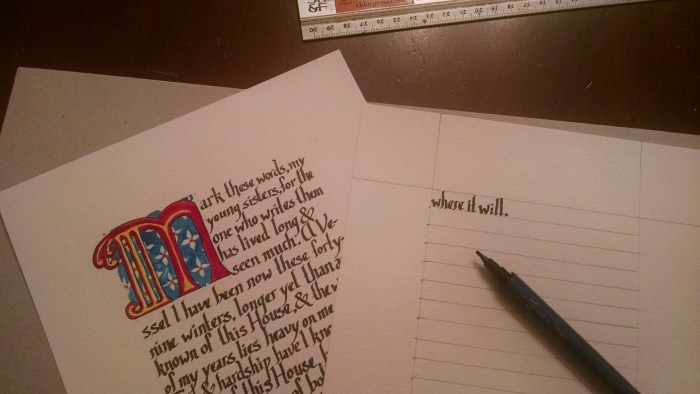 Mark these words, my
young sisters, for the
one who writes them
has lived long &
seen much. A Ve-
ssel I have been now these forty-
nine winters, longer yet than
known of this House, & the
of my years lies heavy on me
& hardship have I
of this House
of
where it will.
30 29 28 27 26 25 24 23 22 21 20 19 18 17 16